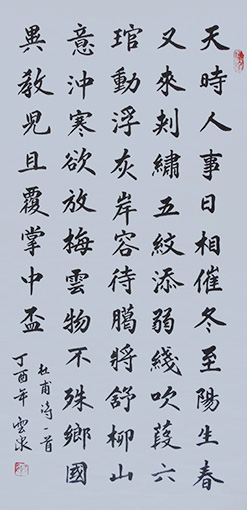 天時人事日相催冬至陽生春
又來刺繡五紋添弱綫吹葭六
琯動浮灰岸容待臘將舒柳山
意沖寒欲放梅雲物不殊鄉國
異教兒且覆掌中盃
杜甫詩一首
丁酉年雲